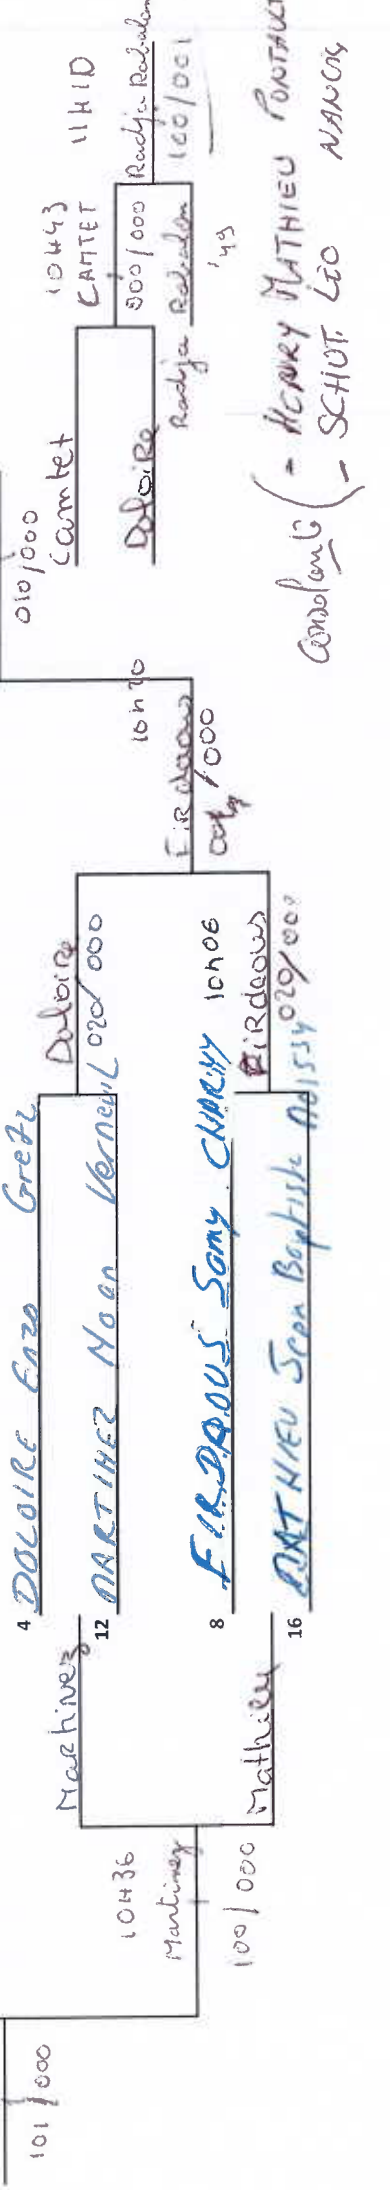 101/000
10H36
Martinez
100/000
Martinez
Mathieu
4 DOLOIRE Enzo Gretz
12 MARTINEZ Noan Verneuil
8 FIRDAOUS Samy CHARNY
16 MATHIEU Jean Baptiste
Doloire
020/000
10h06
Firdaous
020/00
Firdaous
/000
10h20
010/000
Camtet
Doloire
10H43
CAMTET
000/000
Radja Rabalan
'49
11H1D
Radja Rabalan
100/001
( - HENRY MATHIEU PONTAULT
- SCHOT. LÉO NANCY